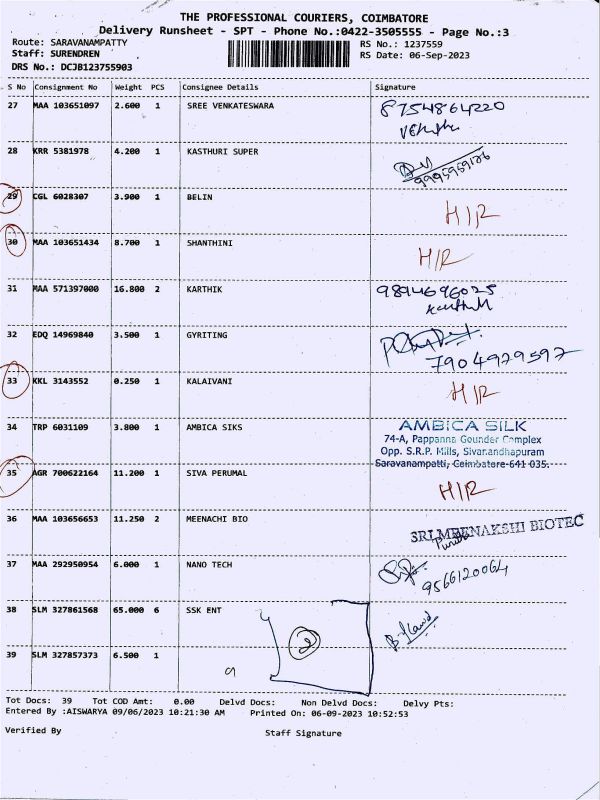 THE PROFESSIONAL COURIERS, COIMBATORE
Delivery Runsheet - SPT - Phone No.:0422-3505555 - Page No.:3
Route: SARAVANAMPATTY RS No.: 1237559
Staff: SURENDREN RS Date: 06-Sep-2023
DRS No.: DCJB123755903
S No Consignment No Weight PCS Consignee Details Signature
27 MAA 103651097 2.600 1 SREE VENKATESWARA 8754864220
28 KRR 5381978 4.200 1 KASTHURI SUPER
29 CGL 6028307 3.900 1 BELIN H/R
30 MAA 103651434 8.700 1 SHANTHINI H/R
31 MAA 571397000 16.800 2 KARTHIK 9894696025
Karthik
32 EDQ 14969840 3.500 1 GYRITING
7904979597
33 KKL 3143552 0.250 1 KALAIVANI H/R
34 TRP 6031109 3.800 1 AMBICA SIKS AMBICA SILK
74-A, Pappanna Gounder Complex
Opp. S.R.P. Mills, Sivanandhapuram
Saravanampatti, Coimbatore-641 035.
35 AGR 700622164 11.200 1 SIVA PERUMAL H/R
36 MAA 103656653 11.250 2 MEENACHI BIO SRI MEENAKSHI BIOTEC
37 MAA 292950954 6.000 1 NANO TECH
9566120064
38 SLM 327861568 65.000 6 SSK ENT
2
39 SLM 327857373 6.500 1
Tot Docs: 39 Tot COD Amt: 0.00 Delvd Docs: Non Delvd Docs: Delvy Pts:
Entered By :AISWARYA 09/06/2023 10:21:30 AM Printed On: 06-09-2023 10:52:53
Verified By Staff Signature